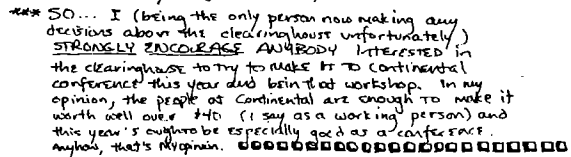 *** SO... I (being the only person now making any
decisions about the clearinghouse unfortunately)
STRONGLY ENCOURAGE ANYBODY INTERESTED in
the clearinghouse to try to make it to Continental
conference this year and be in that workshop. In my
opinion, the people at Continental are enough to make it
worth well over $40 (I say as a working person) and
this year's ought to be especially good as a conference.
Anyhow, that's my opinion.